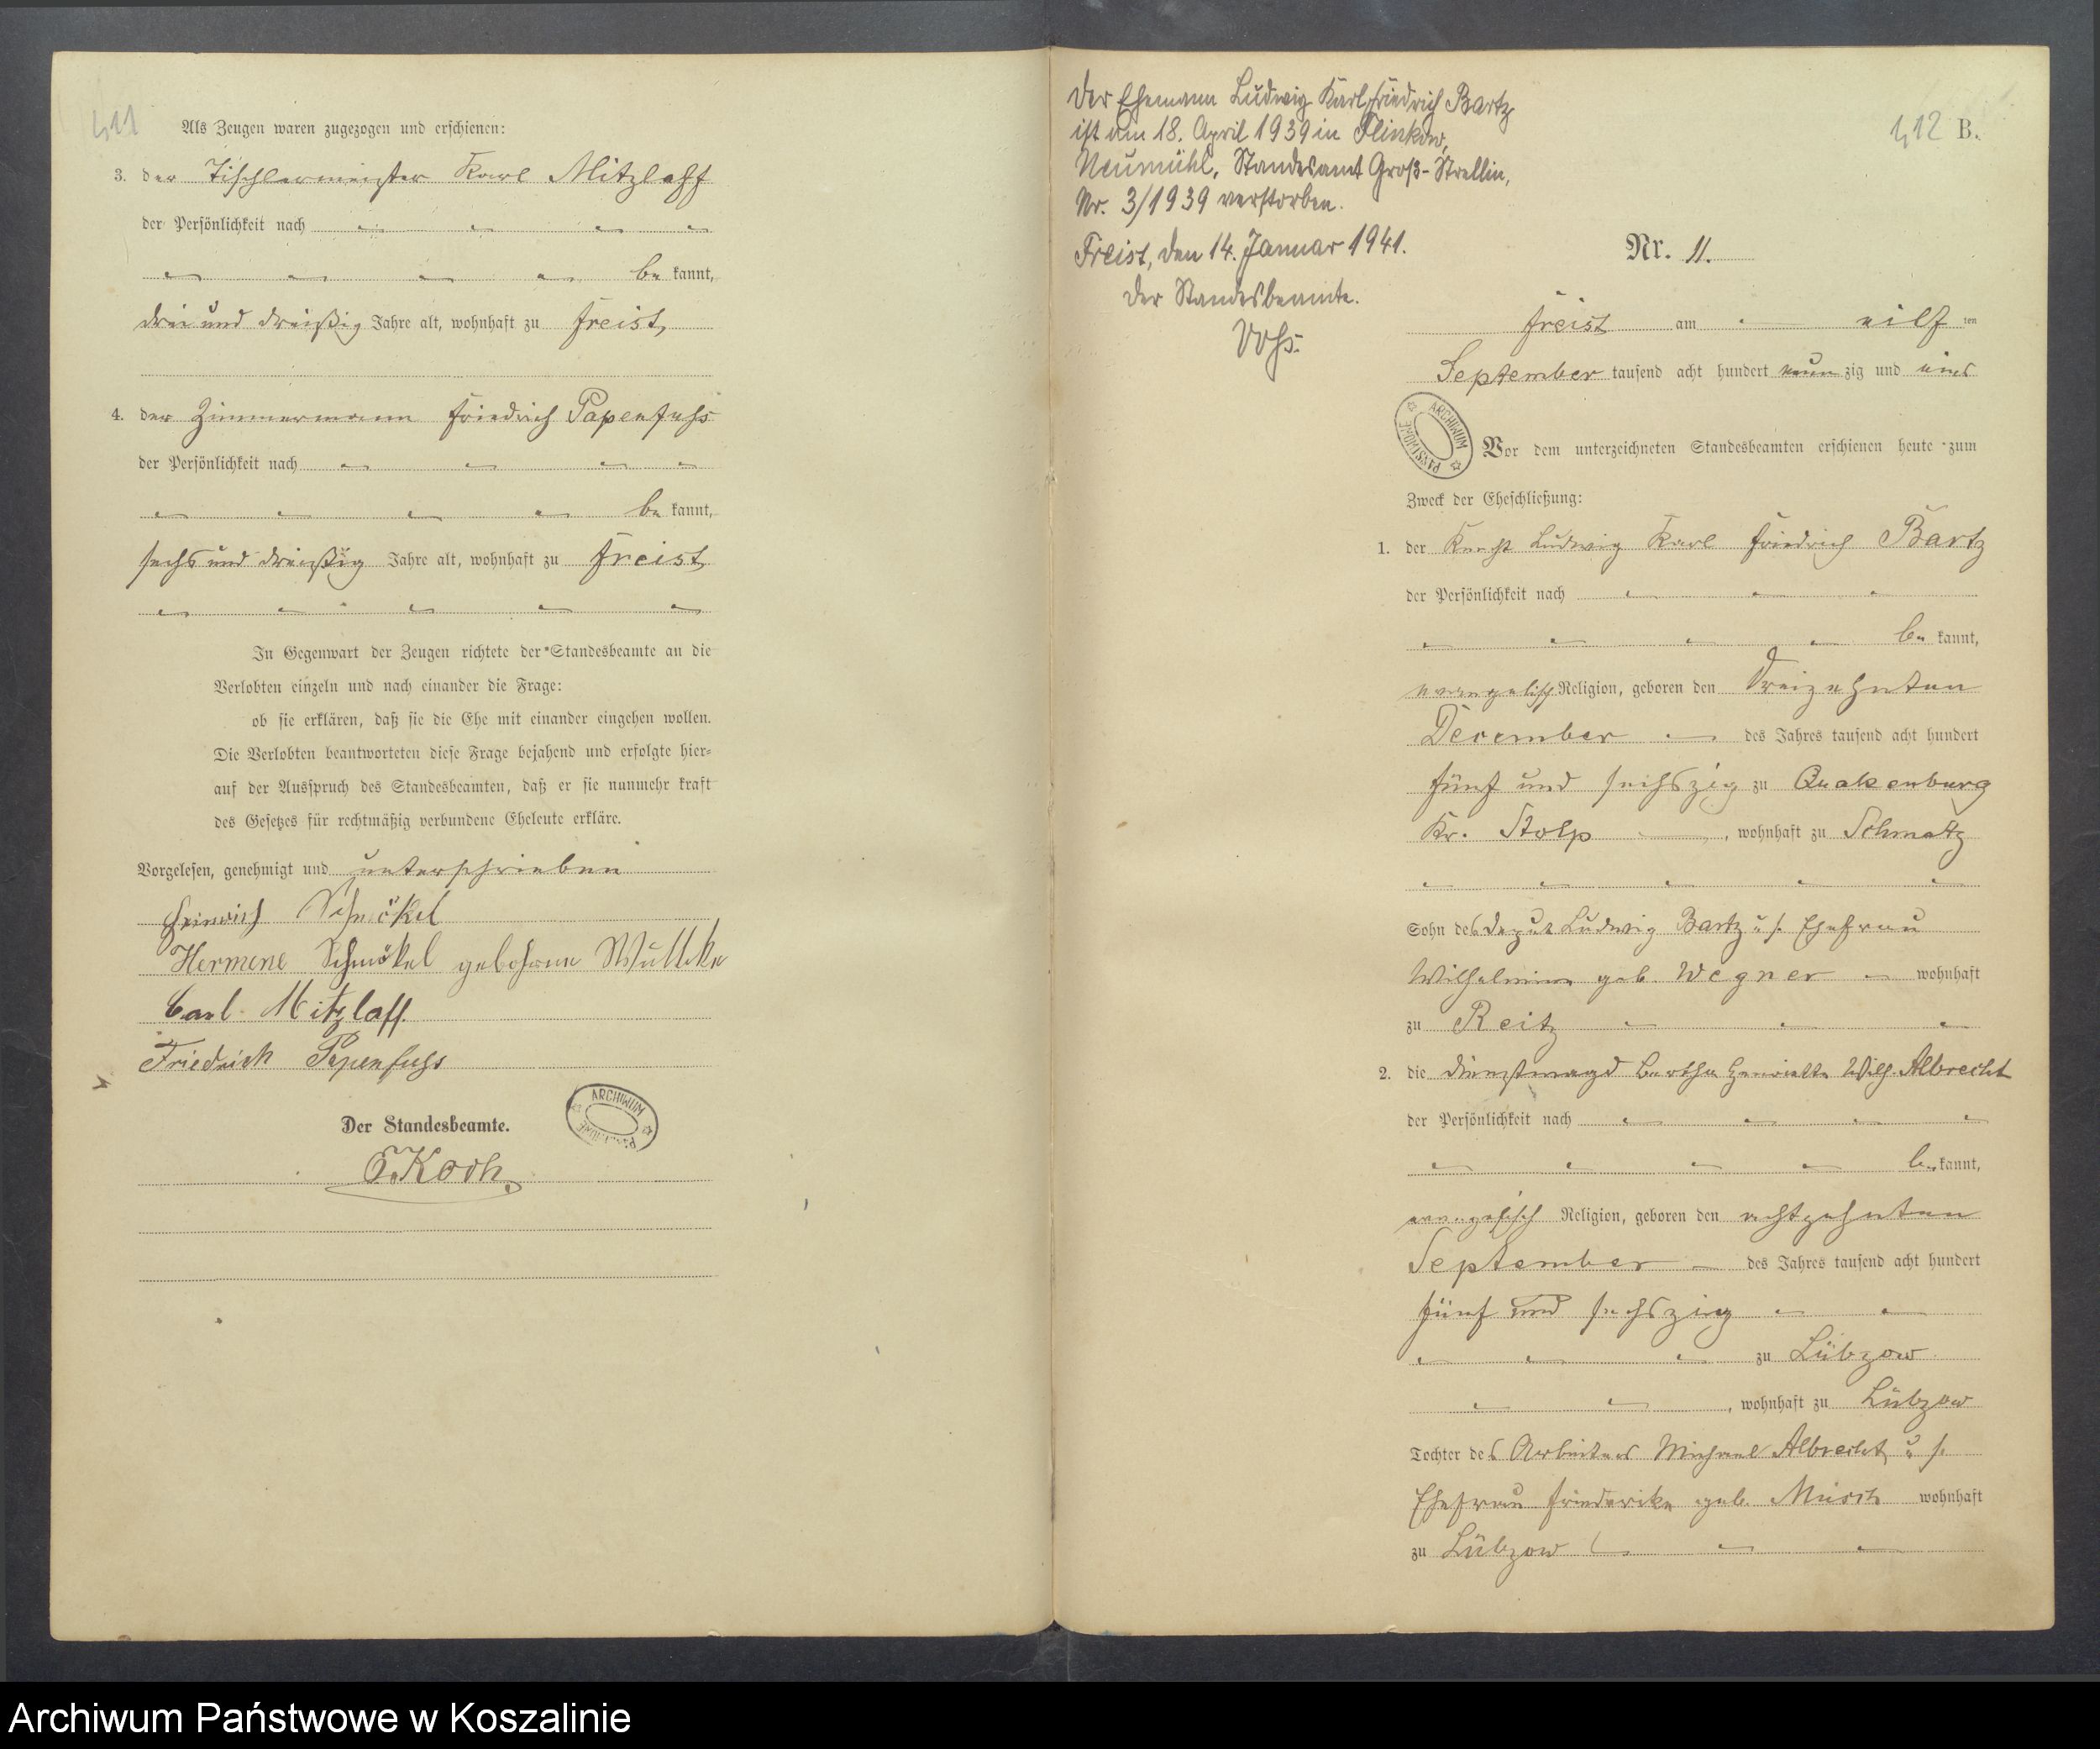 411
Als Zeugen waren zugezogen und erschienen:
3. der Tischlermeister Karl Mitzlaff
der Persönlichkeit nach
be kannt,
drei und dreißig Jahre alt, wohnhaft zu Freist,
4. der Zimmermann Friedrich Papenfuhs
der Persönlichkeit nach
be kannt,
sechs und dreißig Jahre alt, wohnhaft zu Freist
In Gegenwart der Zeugen richtete der Standesbeamte an die
Verlobten einzeln und nach einander die Frage:
ob sie erklären, daß sie die Ehe mit einander eingehen wollen.
Die Verlobten beantworteten diese Frage bejahend und erfolgte hier-
auf der Ausspruch des Standesbeamten, daß er sie nunmehr kraft
des Gesetzes für rechtmäßig verbundene Eheleute erkläre.
Vorgelesen, genehmigt und unterschrieben
Heinrich Schmökel
Hermene Schmökel gebohrne Wuttke
Carl Mitzlaff.
Friedrich Papenfuhs
ARCHIWUM
Der Standesbeamte.
Koch
Der Ehemann Ludwig Karl Friedrich Bartz
ist am 18. April 1939 in Flinkow,
Neumühl, Standesamt Groß-Strellin,
Nr. 3/1939 verstorben.
Freist, den 14. Januar 1941.
Der Standesbeamte.
412 B.
Nr. 11.
Freist am eilf ten
September tausend acht hundert neun zig und eins
ARCHIWUM PAŃSTWOWE
Vor dem unterzeichneten Standesbeamten erschienen heute zum
Zweck der Eheschließung:
1. der Knecht Ludwig Karl Friedrich Bartz
der Persönlichkeit nach
be kannt,
evangelisch Religion, geboren den Dreizehnten
December des Jahres tausend acht hundert
fünf und sechszig zu Quakenburg
Kr. Stolp, wohnhaft zu Schmatz
Sohn des Deput Ludwig Bartz u s. Ehefrau
Wilhelmine geb. Wegner wohnhaft
zu Reitz
2. die Dienstmagd Bertha Henriette Wilh. Albrecht
der Persönlichkeit nach
be kannt,
evangelisch Religion, geboren den achtzehnten
September des Jahres tausend acht hundert
fünf und sechszig
zu Lübzow
, wohnhaft zu Lübzow
Tochter des Arbeiters Michael Albrecht u s.
Ehefrau Friederike geb. Müsch wohnhaft
zu Lübzow
Archiwum Państwowe w Koszalinie